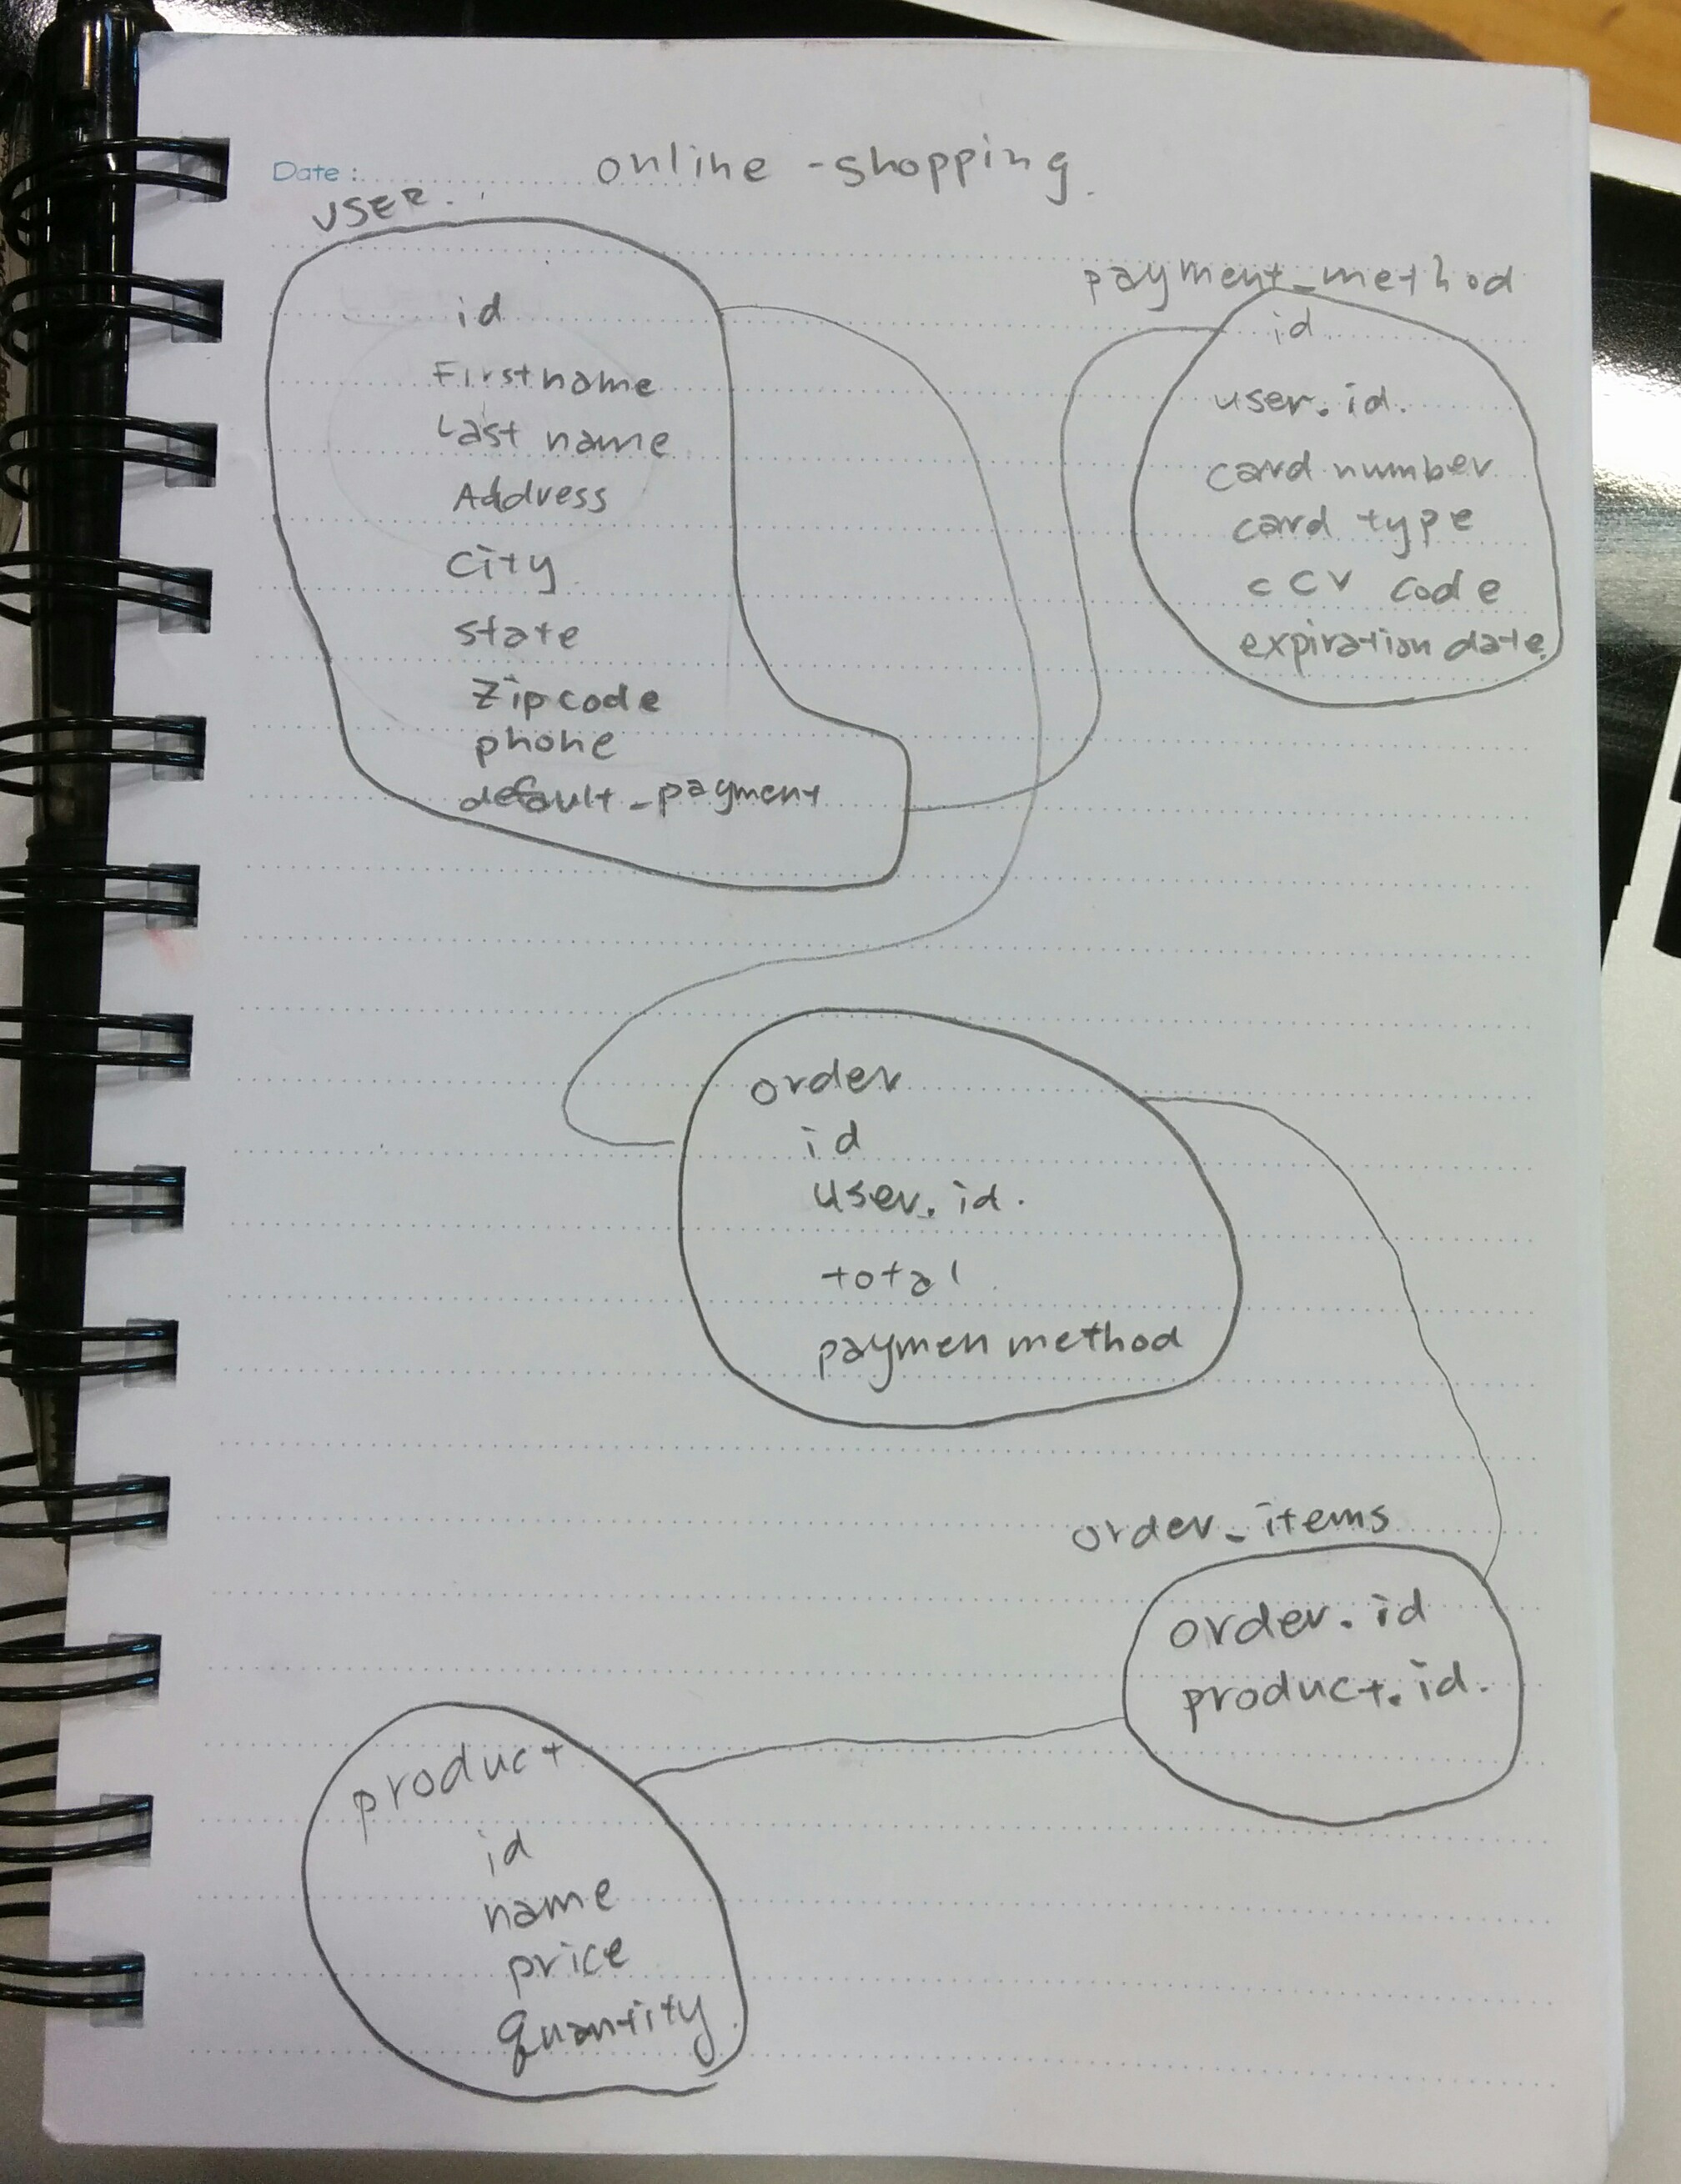 Date :
online -shopping.
USER.
id
Firstname
Last name
Address
City
state
Zip code
phone
default_payment
payment_method
id
user.id.
card number
card type
cCV code
expiration date.
order
id
user.id.
total
paymen method
order_items
order.id
product.id.
product
id
name
price
quantity.